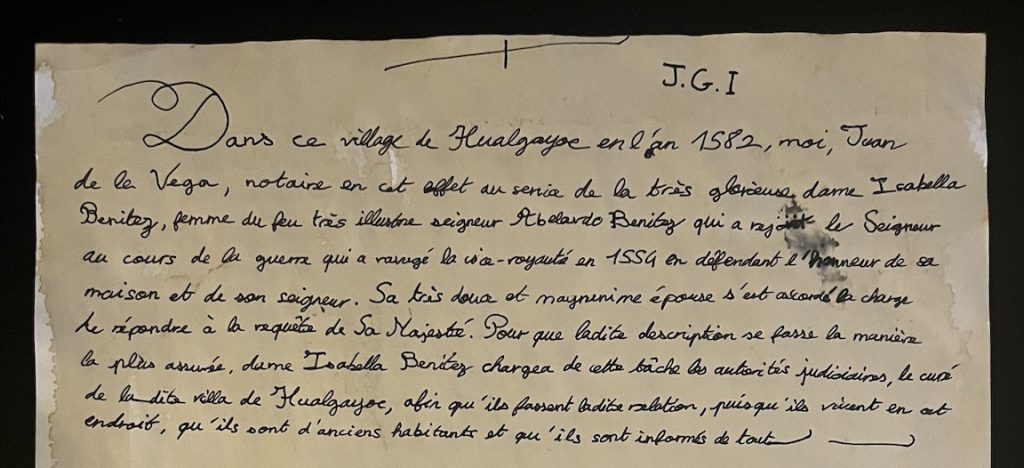 J.G.I
Dans ce village de Hualgayoc en l'an 1582, moi, Juan
de la Vega, notaire en cet effet au service de la très glorieuse dame Isabella
Benitez, femme du feu très illustre seigneur Abelardo Benitez qui a rejoint le Seigneur
au cours de la guerre qui a ravagé la vice-royauté en 1554 en défendant l'honneur de sa
maison et de son seigneur. Sa très douce et magnanime épouse s'est accordé la charge
de répondre à la requête de Sa Majesté. Pour que ladite description se fasse la manière
la plus assurée, dame Isabella Benitez chargea de cette tâche les autorités judiciaires, le curé
de la dite villa de Hualgayoc, afin qu'ils fassent ladite relation, puisqu'ils vivent en cet
endroit, qu'ils sont d'anciens habitants et qu'ils sont informés de tout